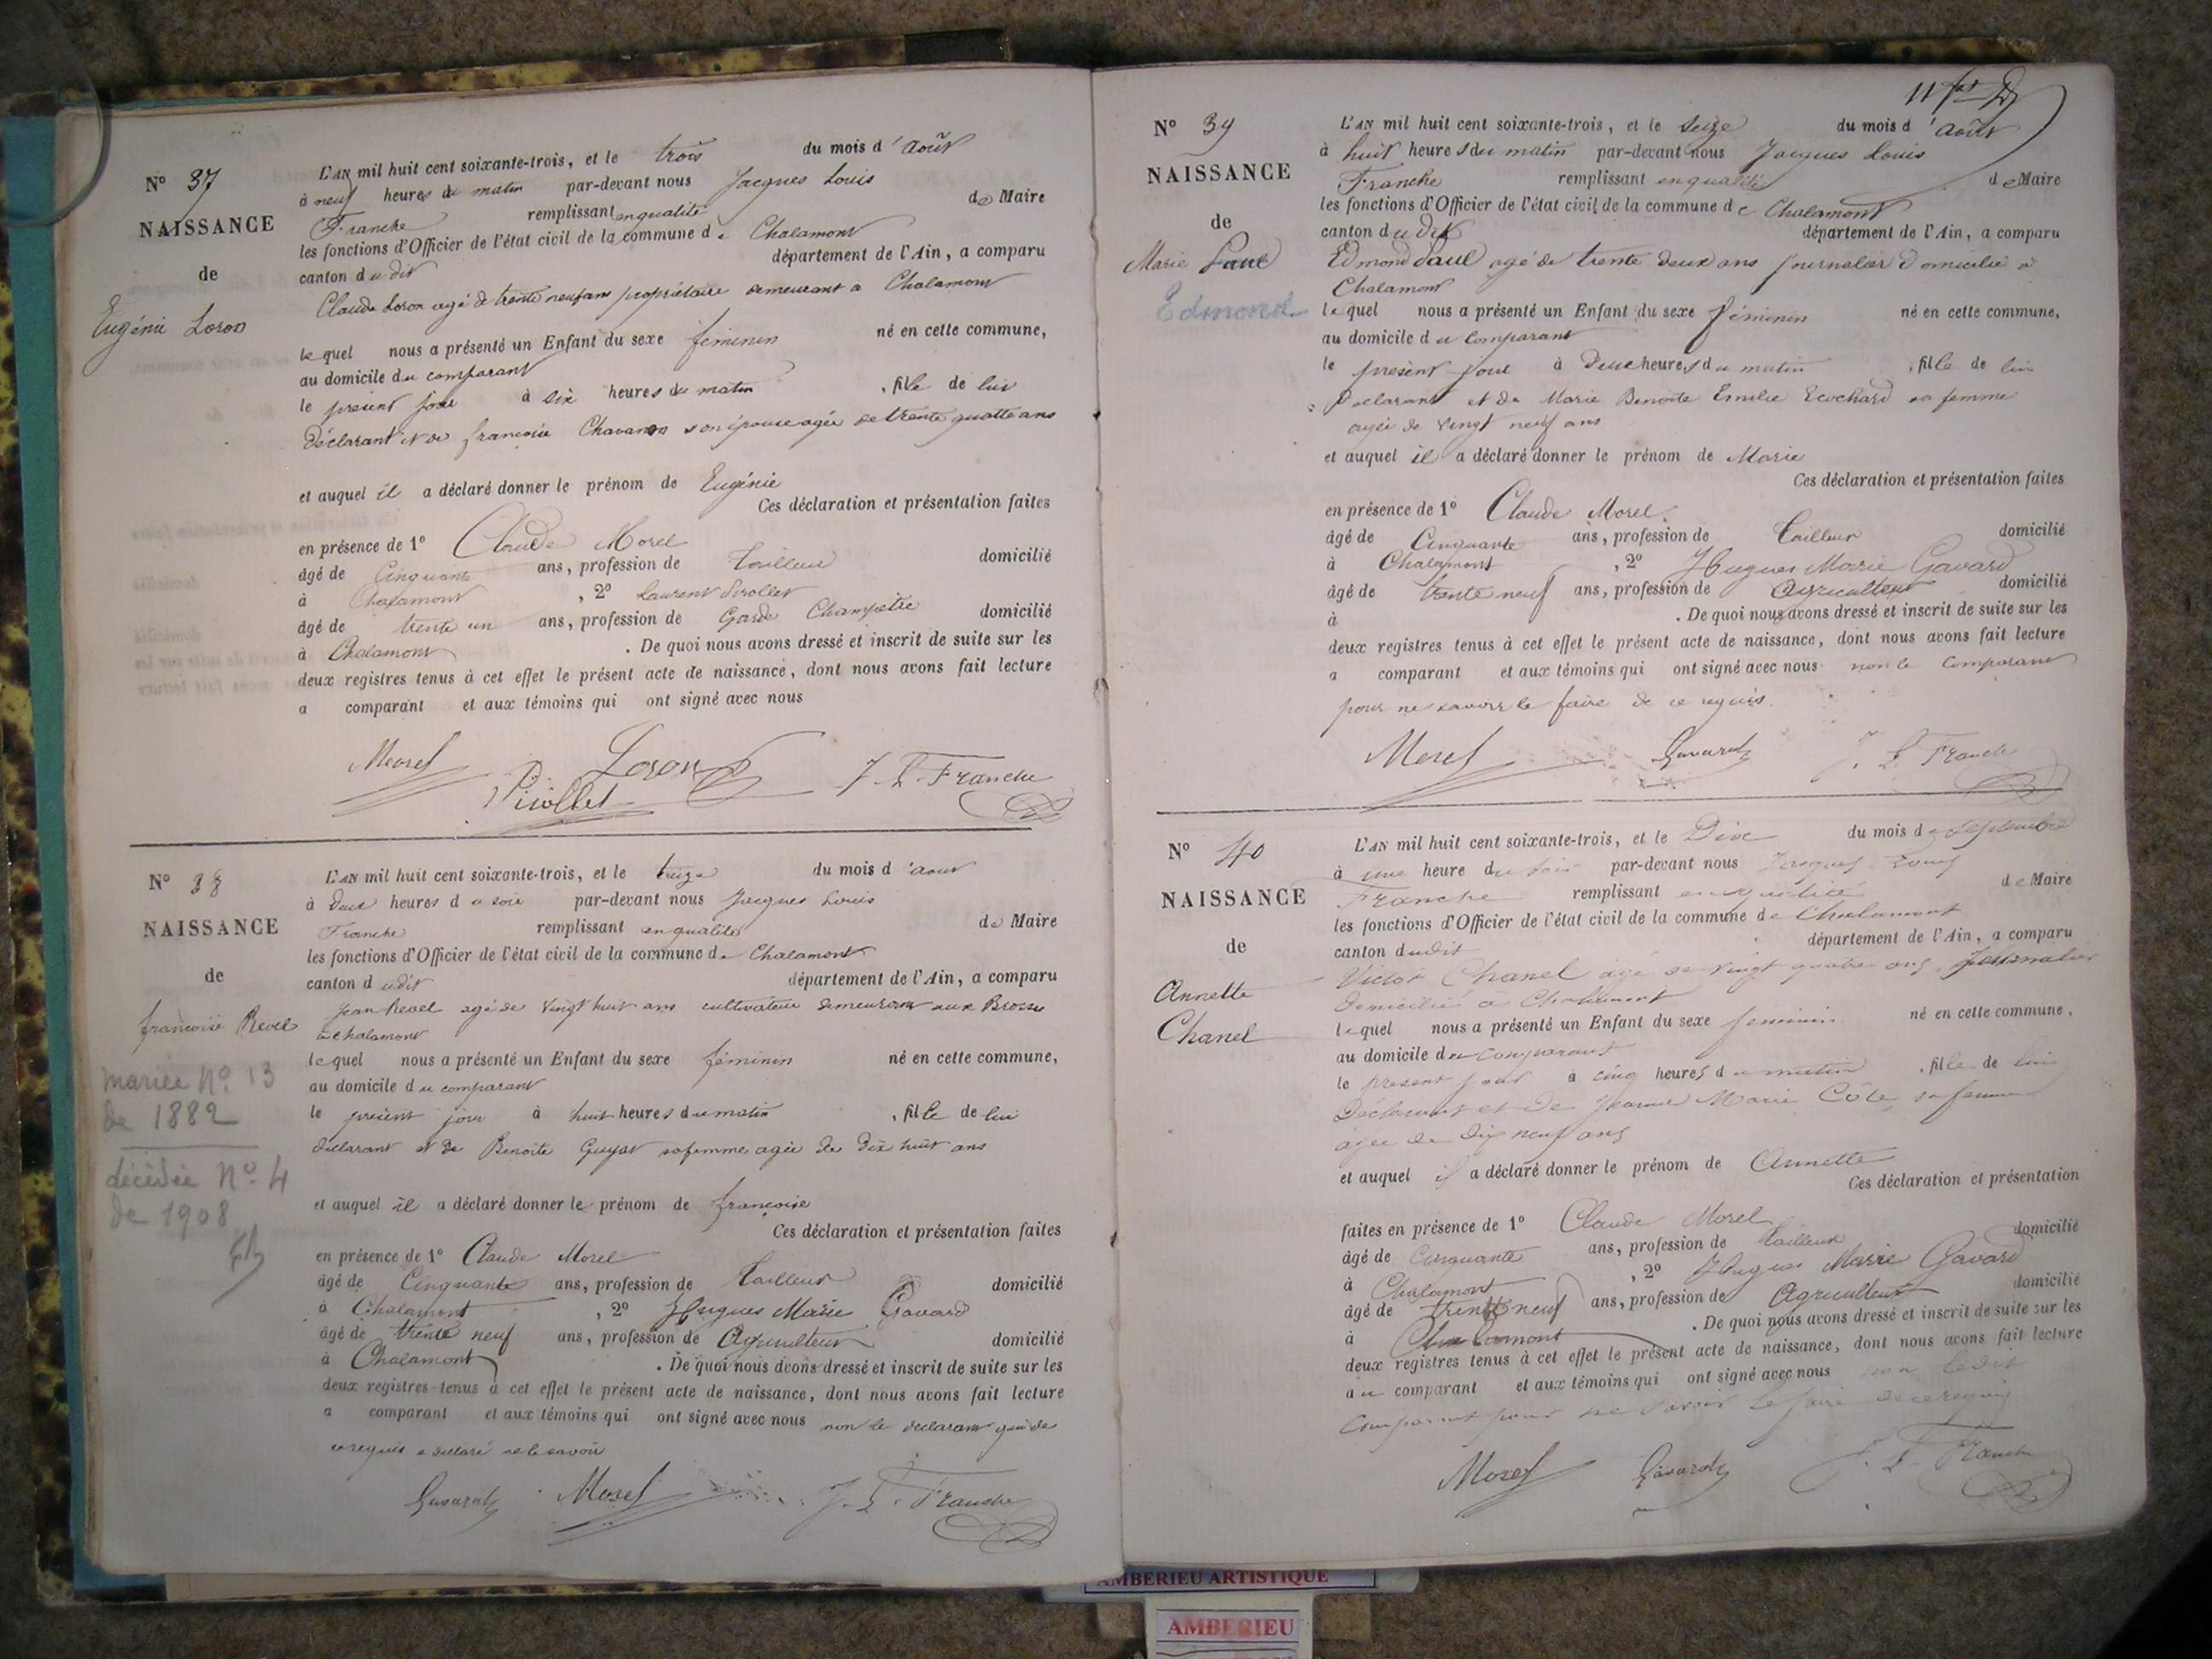 Nº 37
NAISSANCE
de
Eugénie Loron
L'AN mil huit cent soixante-trois, et le trois du mois d'août
à neuf heures du matin par-devant nous Jacques Louis
Franche remplissant en qualité de Maire
les fonctions d'Officier de l'état civil de la commune de Chalamont
canton dudit département de l'Ain, a comparu
Claude Loron agé de trente neuf ans propriétaire demeurant a Chalamont
lequel nous a présenté un Enfant du sexe féminin né en cette commune,
au domicile du comparant
le présent jour à six heures du matin, fille de lui
Déclarant et de françoise Chavanon son épouse agée de trente quatre ans
et auquel il a déclaré donner le prénom de Eugénie
Ces déclaration et présentation faites
en présence de 1º Claude Morel
âgé de Cinquante ans, profession de tailleur domicilié
à Chalamont, 2º Laurent Pirollet
âgé de trente un ans, profession de Garde Champêtre domicilié
à Chalamont. De quoi nous avons dressé et inscrit de suite sur les
deux registres tenus à cet effet le présent acte de naissance, dont nous avons fait lecture
a comparant et aux témoins qui ont signé avec nous
Morel Loron
Pirollet J. L. Franche
Nº 38
NAISSANCE
de
françoise Revel
mariée Nº 13
de 1882
décédée Nº 4
de 1908
L'AN mil huit cent soixante-trois, et le treize du mois d'aout
à deux heures du soir par-devant nous Jacques Louis
Franche remplissant en qualité de Maire
les fonctions d'Officier de l'état civil de la commune de Chalamont
canton dudit département de l'Ain, a comparu
Jean Revel agé de vingt huit ans cultivateur demeurant aux Brosses
a chalamont
lequel nous a présenté un Enfant du sexe féminin né en cette commune,
au domicile du comparant
le présent jour à huit heures du matin, fille de lui
déclarant et de Benoite Guyot sa femme agée de dix huit ans
et auquel il a déclaré donner le prénom de françoise
Ces déclaration et présentation faites
en présence de 1º Claude Morel
âgé de Cinquante ans, profession de tailleur domicilié
à Chalamont, 2º Hugues Marie Gavard
âgé de trente neuf ans, profession de Agriculteur domicilié
à Chalamont. De quoi nous avons dressé et inscrit de suite sur les
deux registres tenus à cet effet le présent acte de naissance, dont nous avons fait lecture
a comparant et aux témoins qui ont signé avec nous non le déclarant qui de
ce requis a déclaré ne le savoir
Gavard Morel J. L. Franche
Nº 39
NAISSANCE
de
Marie Paul
Edmond
L'AN mil huit cent soixante-trois, et le seize du mois d'août
à huit heures du matin par-devant nous Jacques Louis
Franche remplissant en qualité de Maire
les fonctions d'Officier de l'état civil de la commune de Chalamont
canton dudit département de l'Ain, a comparu
Edmond Paul agé de trente deux ans journalier domicilié à
Chalamont
lequel nous a présenté un Enfant du sexe féminin né en cette commune,
au domicile du comparant
le présent jour à deux heures du matin, fille de lui
Déclarant et de Marie Benoite Emelie Ecochard sa femme
agée de vingt neuf ans
et auquel il a déclaré donner le prénom de Marie
Ces déclaration et présentation faites
en présence de 1º Claude Morel
âgé de Cinquante ans, profession de tailleur domicilié
à Chalamont, 2º Hugues Marie Gavard
âgé de trente neuf ans, profession de Agriculteur domicilié
à. De quoi nous avons dressé et inscrit de suite sur les
deux registres tenus à cet effet le présent acte de naissance, dont nous avons fait lecture
a comparant et aux témoins qui ont signé avec nous non le comparant
pour ne savoir le faire de ce requis.
Morel Gavard J. L. Franche
Nº 40
NAISSANCE
de
Annette
Chanel
L'AN mil huit cent soixante-trois, et le Dix du mois de septembre
à une heure du soir par-devant nous Jacques Louis
Franche remplissant en qualité de Maire
les fonctions d'Officier de l'état civil de la commune de Chalamont
canton dudit département de l'Ain, a comparu
Victor Chanel agé de vingt quatre ans, journalier
domicilié à Chalamont
lequel nous a présenté un Enfant du sexe feminin né en cette commune,
au domicile du comparant
le présent jour à cinq heures du matin, fille de lui
Déclarant et de Jeanne Marie Côte, sa femme
agée de dix neuf ans
et auquel il a déclaré donner le prénom de Annette
Ces déclaration et présentation
faites en présence de 1º Claude Morel
âgé de Cinquante ans, profession de tailleur domicilié
à Chalamont, 2º Hugues Marie Gavard
âgé de trente neuf ans, profession de Agriculteur domicilié
à Chalamont. De quoi nous avons dressé et inscrit de suite sur les
deux registres tenus à cet effet le présent acte de naissance, dont nous avons fait lecture
au comparant et aux témoins qui ont signé avec nous non ledit
comparant pour ne savoir le faire de ce requis
Morel Gavard J. L. Franche
AMBERIEU ARTISTIQUE
AMBERIEU